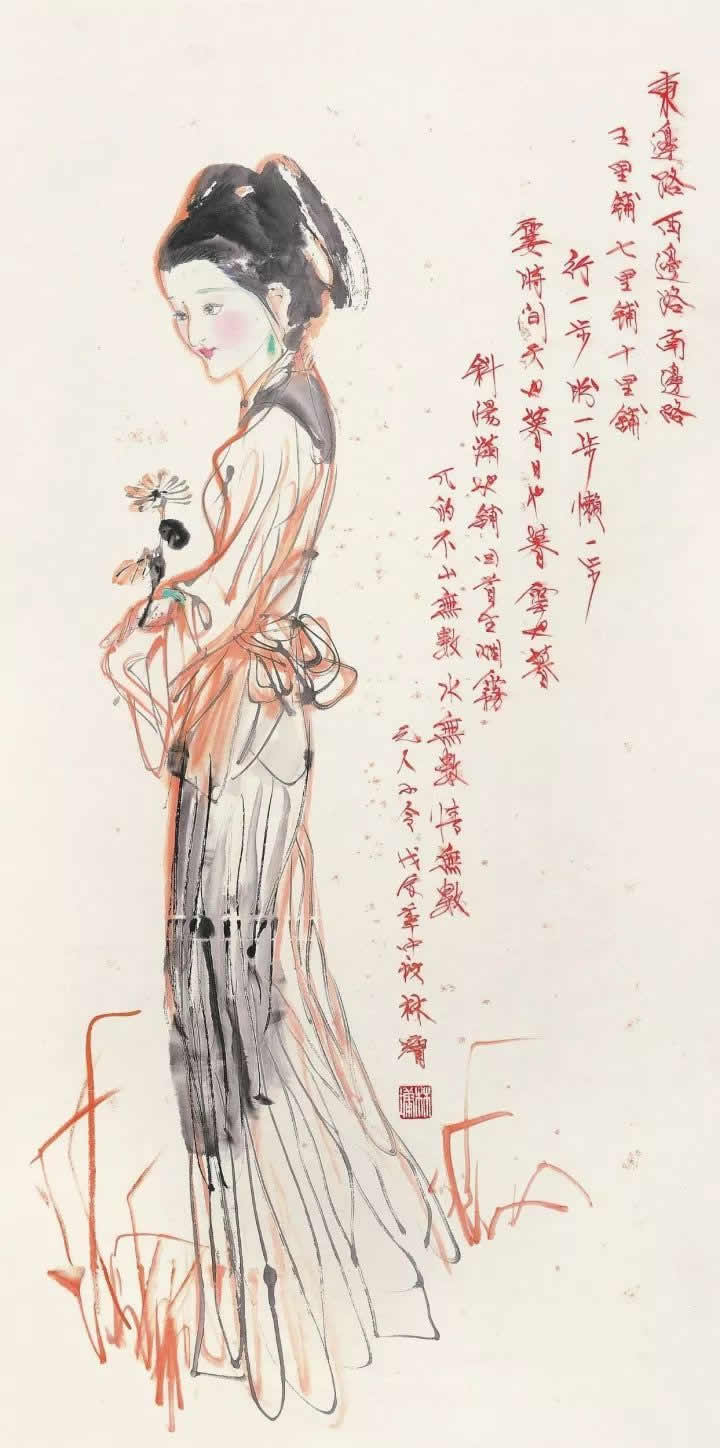 東邊路西邊路南邊路
五里鋪七里鋪十里鋪
行一步盼一步懶一步
霎時間天也暮日也暮雲也暮
斜陽滿地鋪回首生烟霧
兀的不山無數水無數情無數
元人小令戊辰年中秋林墉
林墉